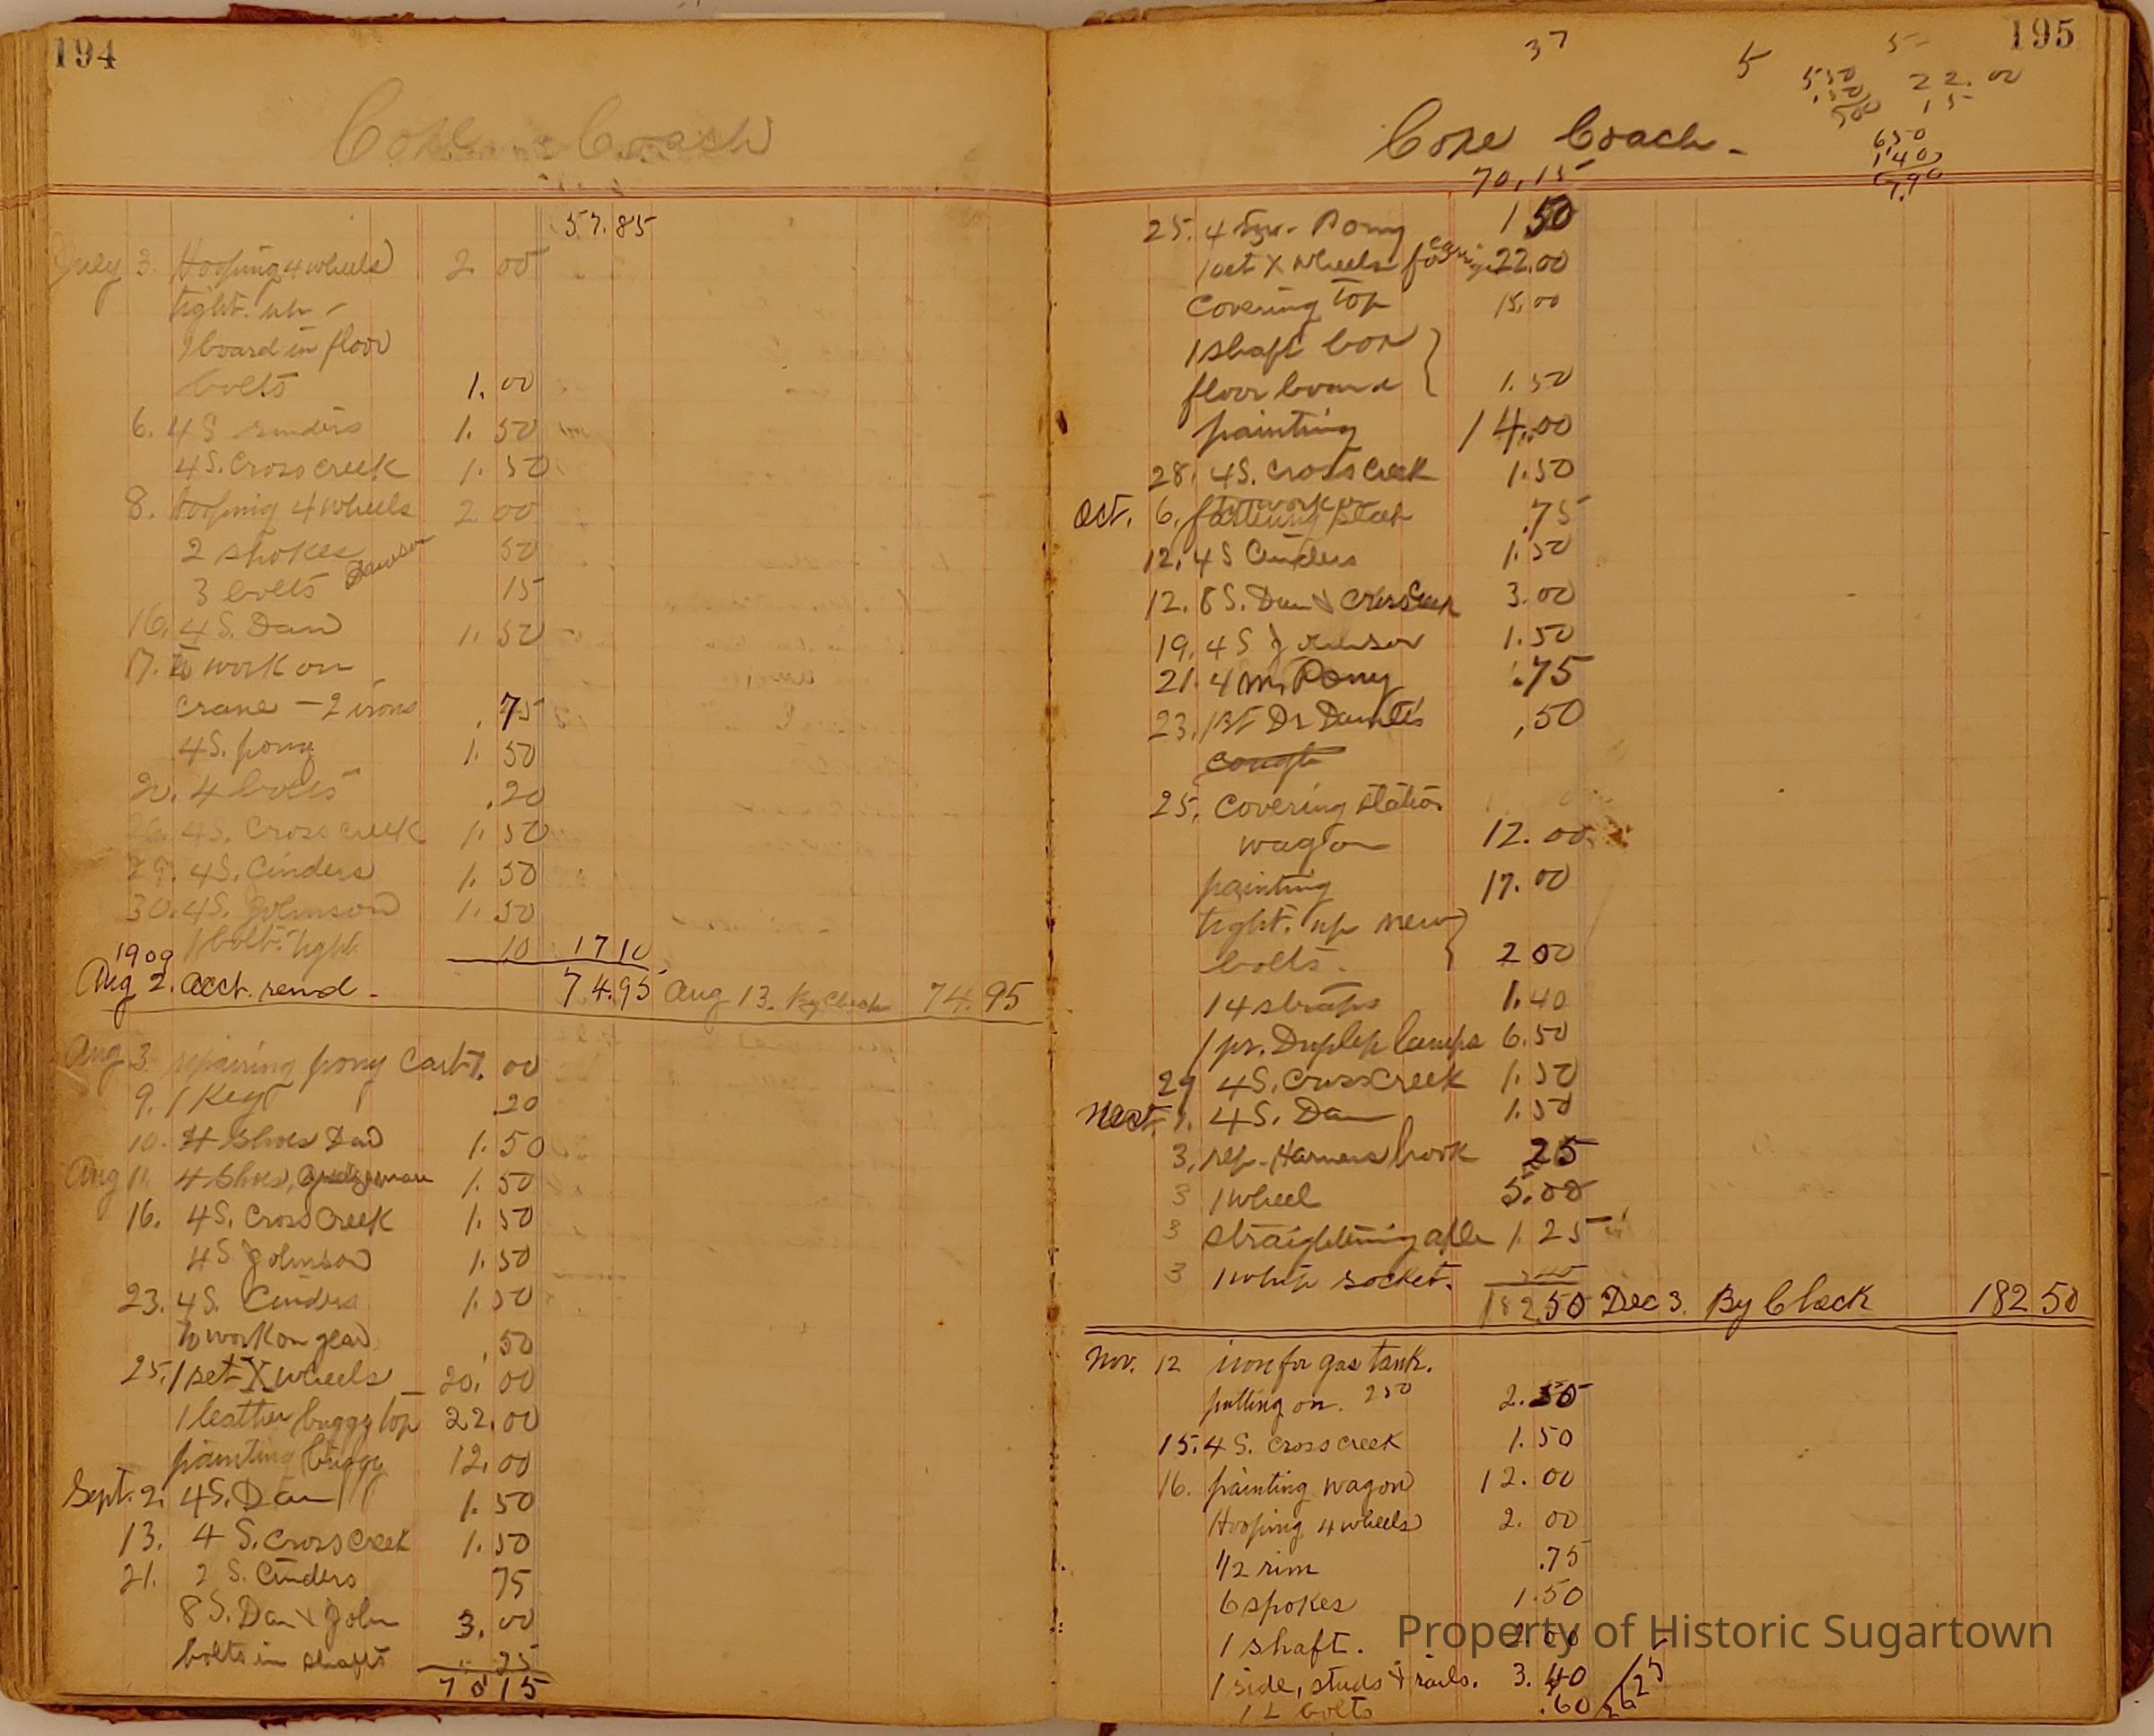 194
Cope Coach
57.85
July 3. Hooping 4 wheels 2 00
tight. up -
1 board in floor
bolts 1. 00
6. 4 S 1. 50
4 S. Cross creek 1. 50
8. Hooping 4 wheels 2 00
2 spokes 50
3 bolts 15
16. 4 S. Dan 1. 50
17. to work on
crane - 2 irons . 75
4 S. pony 1. 50
20. 4 bolts .20
26. 4 S. Cross creek 1. 50
29. 4 S. Cinders 1. 50
30. 4 S. Johnson 1. 50
1 bolt. tight 10 17 10
1909
Aug 2. acct. rend. 74.95 Aug 13. By Check 74.95
Aug 3. repairing pony cart 7. 00
9. 1 Key .20
10. 4 Shoes Dan 1. 50
Aug 11. 4 Shoes, 1. 50
16. 4 S. Cross Creek 1. 50
4 S. Johnson 1. 50
23. 4 S. Cinders 1. 50
to work on gear . 50
25. 1 set X wheels 20. 00
1 leather buggy top 22.00
painting buggy 12.00
Sept. 2. 4 S. Dan 1. 50
13. 4 S. Cross Creek 1. 50
21. 2 S. Cinders 75
8 S. Dan & John 3. 00
bolts in shafts .. 25
70 15
195
37 5 5
550 22.00
.50 15
500
650
140
7.90
Cope Coach -
70,15
25. 4 Pony 1 50
1 set X wheels for 22.00
Covering top 15.00
1 shaft box }
floor board } 1. 50
painting 14.00
28. 4 S. Cross Creek 1.50
Oct. 6. .75
12. 4 S Cinders 1.50
12. 8 S. Dan & Cross Creek 3.00
19. 4 S Johnson 1.50
21. 4 m. Pony .75
23. ,50
25. Covering station
wagon 12.00
painting 17.00
tight. up new }
bolts. } 2 00
14 straps 1.40
1 pr. Duplex lamps 6.50
29 4 S. Cross Creek 1.50
1. 4 S. Dan 1.50
3. rep. Harness hook 25
3 1 wheel 5.00
3 straightening axle 1.25
3 1 whip socket.
182.50 Dec 3. By Check 182 50
Nov. 12 iron for gas tank.
putting on. 250 2.50
15. 4 S. Cross creek 1.50
16. painting wagon 12.00
Hooping 4 wheels 2. 00
1/2 rim .75
6 spokes 1.50
1 shaft. 2.00
1 side, studs & rails. 3.40
12 bolts .60 2625
Property of Historic Sugartown